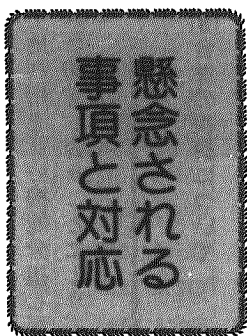 懸念される
事項と対応